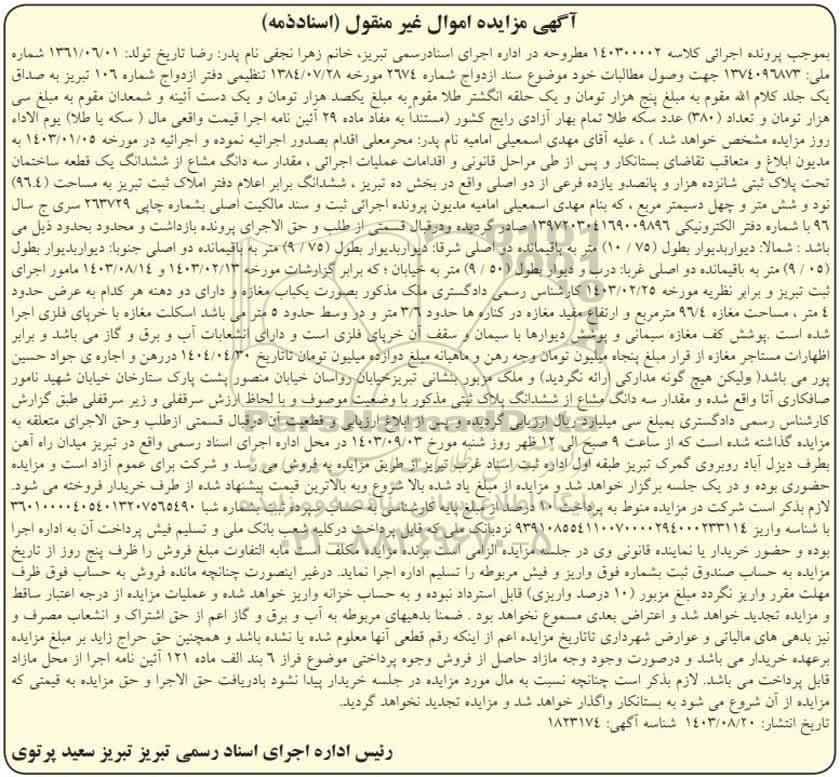 آگهی مزایده اموال غیر منقول (اسنادذمه)
بموجب پرونده اجرائی کلاسه ۱۴۰۳۰۰۰۰۲ مطروحه در اداره اجرای اسنادرسمی تبریز، خانم زهرا نجفی نام پدر: رضا تاریخ تولد: ۱۳۶۱/۰۶/۰۱ شماره
ملی: ۱۳۷۴۰۹۶۸۷۳ جهت وصول مطالبات خود موضوع سند ازدواج شماره ۲۶۷۴ مورخه ۱۳۸۴/۰۷/۲۸ تنظیمی دفتر ازدواج شماره ۱۰۶ تبریز به صداق
یک جلد کلام الله مقوم به مبلغ پنج هزار تومان و یک حلقه انگشتر طلا مقوم به مبلغ یکصد هزار تومان و یک دست آئینه و شمعدان مقوم به مبلغ سی
هزار تومان و تعداد (۳۸۰) عدد سکه طلا تمام بهار آزادی رایج کشور (مستندا به مفاد ماده ۲۹ آئین نامه اجرا قیمت واقعی مال ( سکه یا طلا) یوم الاداء
روز مزایده مشخص خواهد شد ) ، علیه آقای مهدی اسمعیلی امامیه نام پدر: محرمعلی اقدام بصدور اجرائیه نموده و اجرائیه در مورخه ۱۴۰۳/۰۱/۰۵ به
مدیون ابلاغ و متعاقب تقاضای بستانکار و پس از طی مراحل قانونی و اقدامات عملیات اجرائی ، مقدار سه دانگ مشاع از ششدانگ یک قطعه ساختمان
تحت پلاک ثبتی شانزده هزار و پانصدو یازده فرعی از دو اصلی واقع در بخش ده تبریز ، ششدانگ برابر اعلام دفتر املاک ثبت تبریز به مساحت (۹۶.۴)
نود و شش متر و چهل دسیمتر مربع ، که بنام مهدی اسمعیلی امامیه مدیون پرونده اجرائی ثبت و سند مالکیت اصلی بشماره چاپی ۲۶۳۷۲۹ سری ج سال
۹۶ با شماره دفتر الکترونیکی ۱۳۹۷۲۰۳۰۴۱۶۹۰۰۹۸۹۶ صادر گردیده ودرقبال قسمتی از طلب و حق الاجرای پرونده بازداشت و محدود بحدود ذیل می
باشد : شمالا: دیواربدیوار بطول (۷۵ / ۱۰) متر به باقیمانده دو اصلی شرقا: دیواربدیوار بطول (۷۵ / ۹) متر به باقیمانده دو اصلی جنوبا: دیواربدیوار بطول
(۰۵ / ۹) متر به باقیمانده دو اصلی غربا: درب و دیوار بطول (۵۰ / ۹) متر به خیابان ؛ که برابر گزارشات مورخه ۱۴۰۳/۰۲/۱۳ و ۱۴۰۳/۰۸/۱۴ مامور اجرای
ثبت تبریز و برابر نظریه مورخه ۱۴۰۳/۰۲/۲۵ کارشناس رسمی دادگستری ملک مذکور بصورت یکباب مغازه و دارای دو دهنه هر کدام به عرض حدود
۴ متر ، مساحت مغازه ۹۶/۴ مترمربع و ارتفاع مفید مغازه در کناره ها حدود ۳/۶ متر و در وسط حدود ۵ متر می باشد اسکلت مغازه با خرپای فلزی اجرا
شده است .پوشش کف مغازه سیمانی و پوشش دیوارها با سیمان و سقف آن خرپای فلزی است و دارای انشعابات آب و برق و گاز می باشد و برابر
اظهارات مستاجر مغازه از قرار مبلغ پنجاه میلیون تومان وجه رهن و ماهیانه مبلغ دوازده میلیون تومان تاتاریخ ۱۴۰۴/۰۴/۳۰ دررهن و اجاره ی جواد حسین
پور می باشد( ولیکن هیچ گونه مدارکی ارائه نگردید) و ملک مزبور بنشانی تبریزخیابان رواسان خیابان منصور پشت پارک ستارخان خیابان شهید نامور
صافکاری آتا واقع شده و مقدار سه دانگ مشاع از ششدانگ پلاک ثبتی مذکور با وضعیت موصوف و با لحاظ ارزش سرقفلی و زیر سرقفلی طبق گزارش
کارشناس رسمی دادگستری بمبلغ سی میلیارد ریال ارزیابی گردیده و پس از ابلاغ ارزیابی و قطعیت آن درقبال قسمتی ازطلب وحق الاجرای متعلقه به
مزایده گذاشته شده است که از ساعت ۹ صبح الی ۱۲ ظهر روز شنبه مورخ ۱۴۰۳/۰۹/۰۳ در محل اداره اجرای اسناد رسمی واقع در تبریز میدان راه آهن
بطرف دیزل آباد روبروی گمرک تبریز طبقه اول اداره ثبت اسناد غرب تبریز از طریق مزایده به فروش می رسد و شرکت برای عموم آزاد است و مزایده
حضوری بوده و در یک جلسه برگزار خواهد شد و مزایده از مبلغ یاد شده بالا شروع وبه بالاترین قیمت پیشنهاد شده از طرف خریدار فروخته می شود.
لازم بذکر است شرکت در مزایده منوط به پرداخت ۱۰ درصد از مبلغ پایه کارشناسی به حساب سپرده ثبت بشماره شبا ۳۶۰۱۰۰۰۰۴۰۵۴۰۱۳۲۰۷۵۶۵۴۹۰
با شناسه واریز ۹۳۹۱۰۸۵۵۴۱۱۰۰۷۰۰۰۰۲۹۴۰۰۰۲۳۳۱۱۴ نزدبانک ملی که قابل پرداخت درکلیه شعب بانک ملی و تسلیم فیش پرداخت آن به اداره اجرا
بوده و حضور خریدار یا نماینده قانونی وی در جلسه مزایده الزامی است . برنده مزایده مکلف است مابه التفاوت مبلغ فروش را ظرف پنج روز از تاریخ
مزایده به حساب صندوق ثبت بشماره فوق واریز و فیش مربوطه را تسلیم اداره اجرا نماید. درغیر اینصورت چنانچه مانده فروش به حساب فوق ظرف
مهلت مقرر واریز نگردد مبلغ مزبور (۱۰ درصد واریزی) قابل استرداد نبوده و به حساب خزانه واریز خواهد شده و عملیات مزایده از درجه اعتبار ساقط
و مزایده تجدید خواهد شد و اعتراض بعدی مسموع نخواهد بود . ضمنا بدهیهای مربوطه به آب و برق و گاز اعم از حق اشتراک و انشعاب مصرف و
نیز بدهی های مالیاتی و عوارض شهرداری تاتاریخ مزایده اعم از اینکه رقم قطعی آنها معلوم شده یا نشده باشد و همچنین حق حراج زاید بر مبلغ مزایده
برعهده خریدار می باشد و درصورت وجود وجه مازاد حاصل از فروش وجوه پرداختی موضوع فراز ۶ بند الف ماده ۱۲۱ آئین نامه اجرا از محل مازاد
قابل پرداخت می باشد. لازم بذکر است چنانچه نسبت به مال مورد مزایده در جلسه خریدار پیدا نشود بادریافت حق الاجرا و حق مزایده به قیمتی که
مزایده از آن شروع می شود به بستانکار واگذار خواهد شد و مزایده تجدید نخواهد گردید.
تاریخ انتشار: ۱۴۰۳/۰۸/۲۰ شناسه آگهی: ۱۸۲۳۱۷۴
رئیس اداره اجرای اسناد رسمی تبریز تبریز سعید پرتوی
پایگاه اطلاع رسانی مناقصه و مزایده
۰۲۱-۸۸۳۴۹۶۷۰-۵